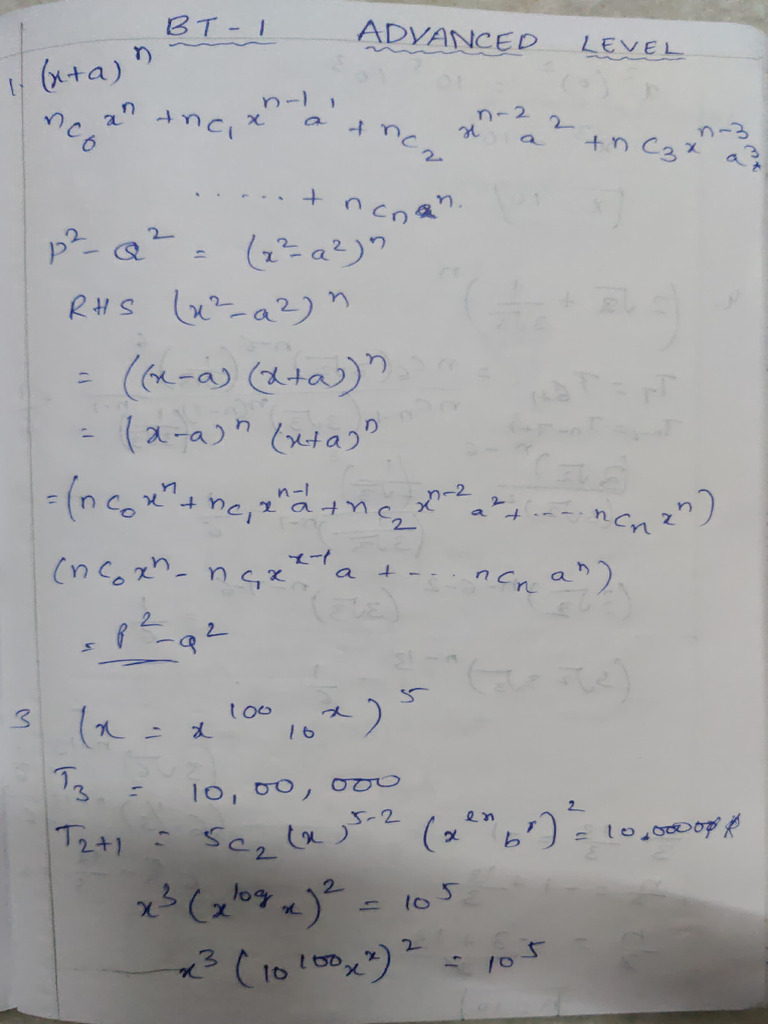 BT-1 ADVANCED LEVEL
1. (x+a)^n
nc₀ x^n + nc₁ x^n-1 a^1 + nc₂ x^n-2 a^2 + nc₃ x^n-3 a^3
..... + ncn a^n.
P^2 - Q^2 = (x^2 - a^2)^n
RHS (x^2 - a^2)^n
= ((x-a) (x+a))^n
= (x-a)^n (x+a)^n
= (nc₀ x^n + nc₁ x^n-1 a + nc₂ x^n-2 a^2 + .... ncn x^n)
(nc₀ x^n - nc₁ x^x-1 a + .... ncn a^n)
= P^2 - Q^2
3 (x = x^100 10^x)^5
T₃ = 10,00,000
T₂₊₁ = 5c₂ (x)^5-2 (x^ )^2 = 10,0000
x^3 (x^log x)^2 = 10^5
x^3 (10^100 x^x)^2 = 10^5